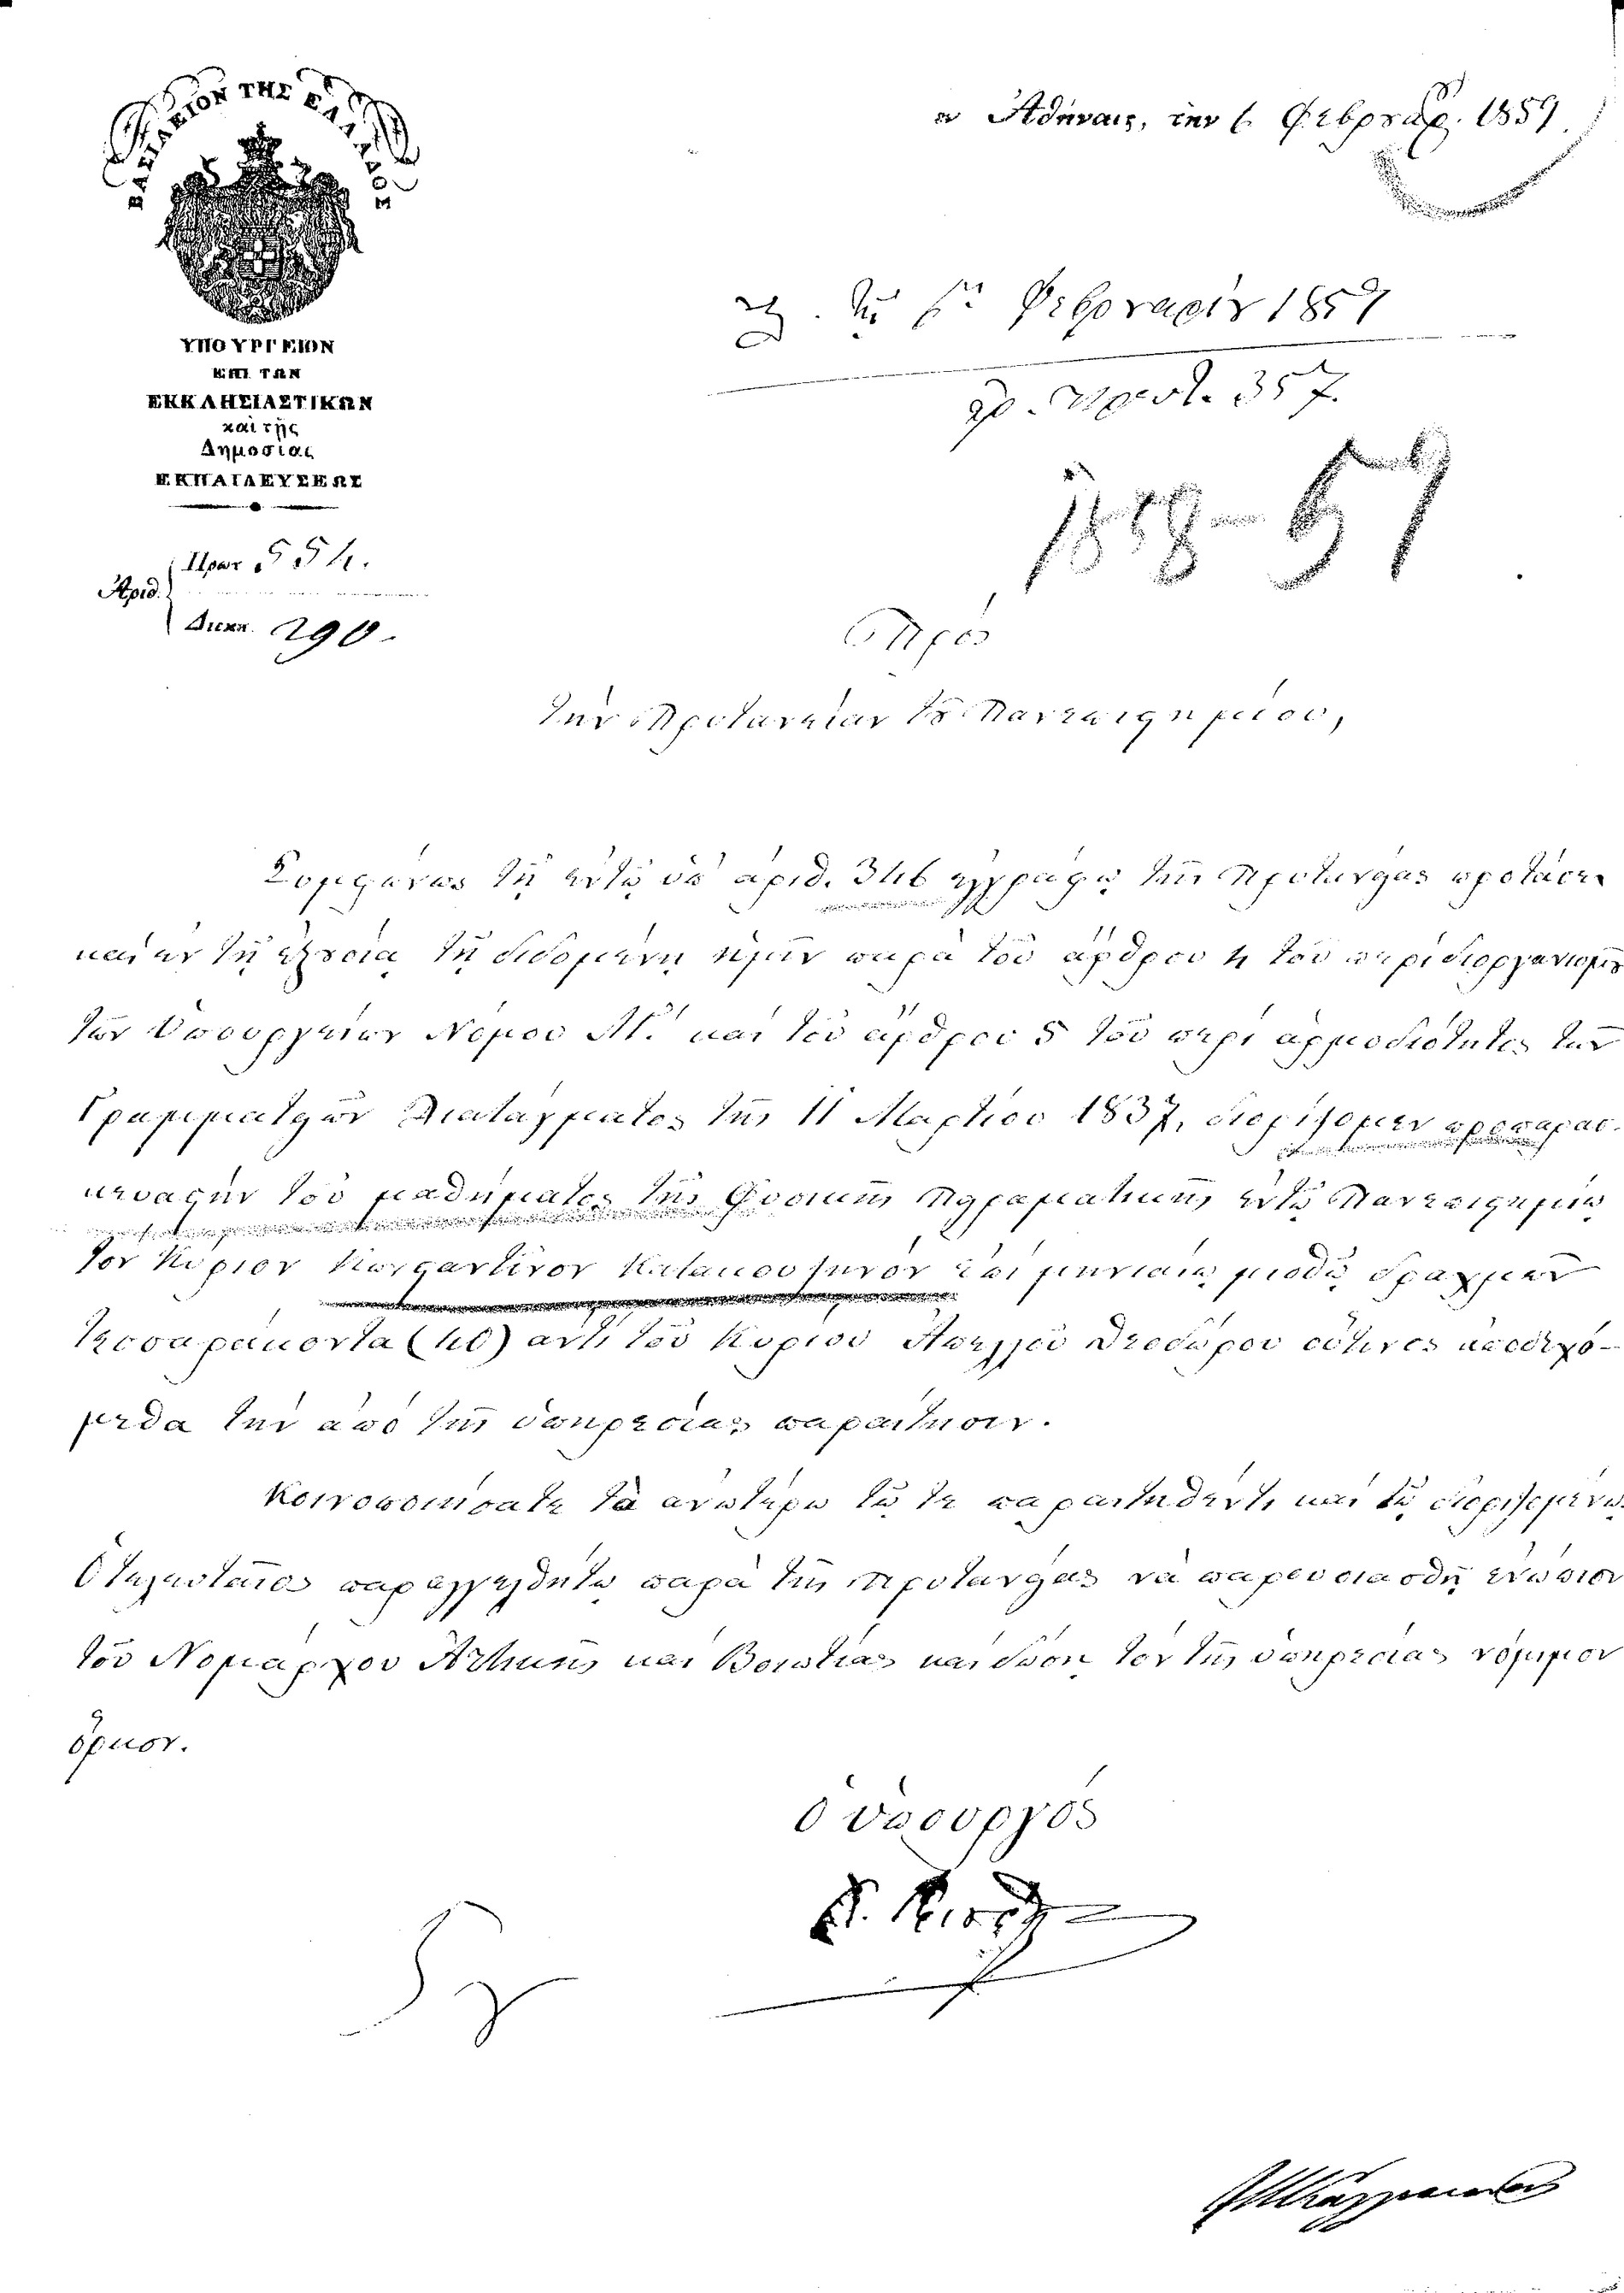 ΒΑΣΙΛΕΙΟΝ ΤΗΣ ΕΛΛΑΔΟΣ
ἐν Ἀθήναις, τὴν 6 Φεβρουαρ. 1859
ΥΠΟΥΡΓΕΙΟΝ
ΕΠΙ ΤΩΝ
ΕΚΚΛΗΣΙΑΣΤΙΚΩΝ
καὶ τῆς
Δημοσίας
ΕΚΠΑΙΔΕΥΣΕΩΣ
τῇ Φεβρουαρίου 1859
Πρωτ. 357.
1858-59
Ἀριθ.
Πρωτ 554.
Διεκπ. 290.
Πρὸς
τὴν Πρυτανείαν τοῦ Πανεπιστημίου,
Συμφώνως τῇ ἐν τῷ ὑπ' ἀριθ. 346 ἐγγράφῳ τῆς Πρυτανείας προτάσει
καὶ ἐν τῇ ἐξουσίᾳ τῇ διδομένῃ ἡμῖν παρὰ τοῦ ἄρθρου 4 τοῦ περὶ διοργανισμοῦ
τῶν Ὑπουργείων Νόμου ΛΓ. καὶ τοῦ ἄρθρου 5 τοῦ περὶ ἁρμοδιότητος τῶν
Γραμματειῶν Διατάγματος τῆς 11 Μαρτίου 1837, διορίζομεν προπαρασ-
κευαστὴν τοῦ μαθήματος τῆς Φυσικῆς Πειραματικῆς ἐν τῷ Πανεπιστημίῳ
τὸν Κύριον Κωνσταντῖνον Κατακουζηνὸν ἐπὶ μηνιαίῳ μισθῷ δραχμῶν
τεσσαράκοντα (40) ἀντὶ τοῦ Κυρίου Ἀγγελῆ Θεοδώρου οὗτινος ἀποδεχό-
μεθα τὴν ἀπὸ τῆς ὑπηρεσίας παραίτησιν.
Κοινοποιήσατε τὰ ἀνωτέρω τῷ τε παραιτηθέντι καὶ τῷ διοριζομένῳ.
Ὁ τελευταῖος παραγγελθήτω παρὰ τῆς Πρυτανείας νὰ παρουσιασθῇ ἐνώπιον
τοῦ Νομάρχου Ἀττικῆς καὶ Βοιωτίας καὶ δώσῃ τὸν τῆς ὑπηρεσίας νόμιμον
ὅρκον.
ὁ ὑπουργὸς